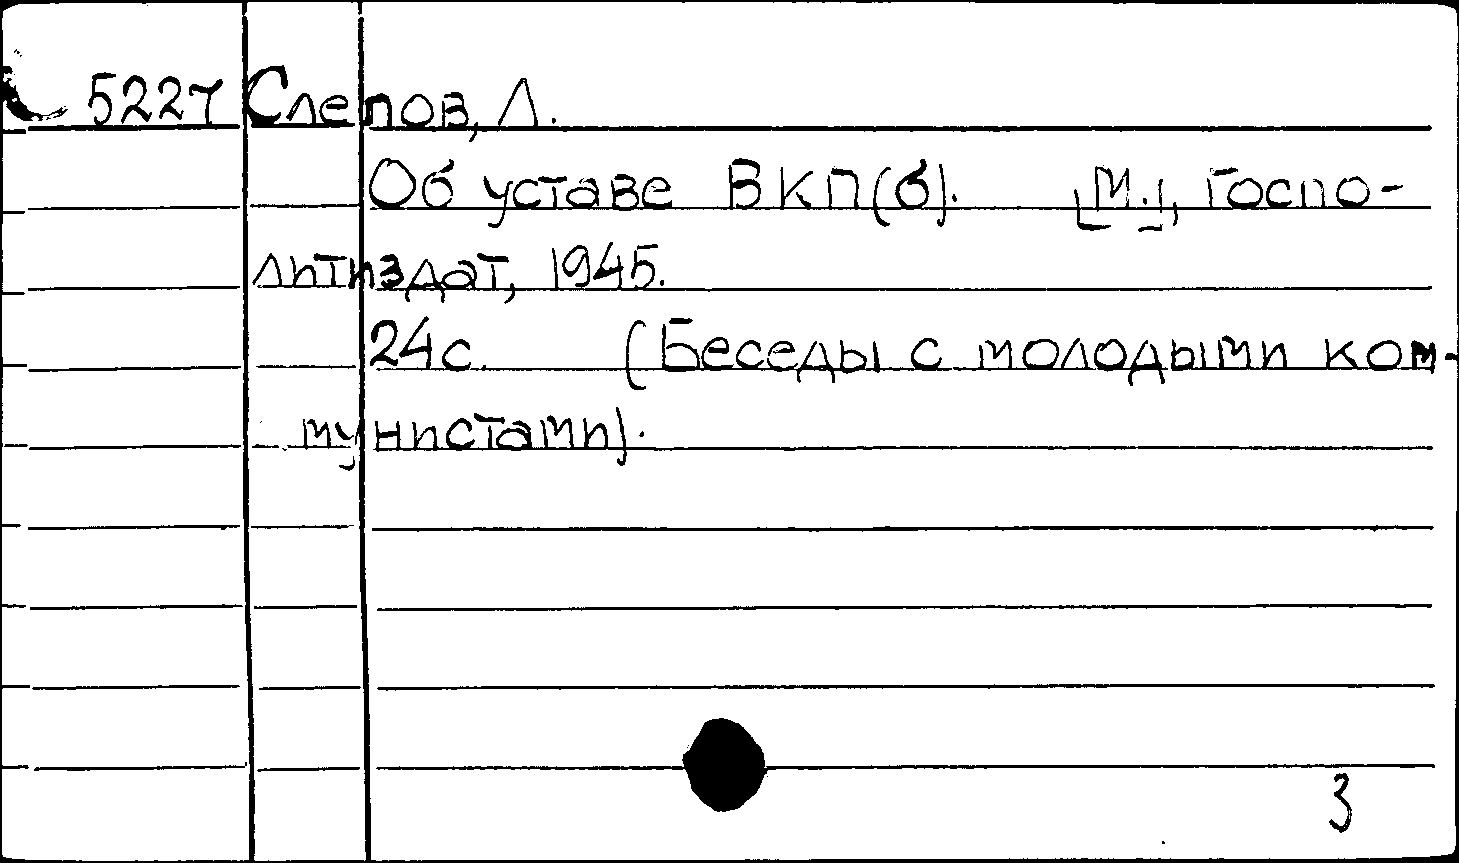 5227 Слепов, Л.
Об уставе ВКП(б). [М.], Госпо-
литиздат, 1945.
24с. (Беседы с молодыми ком-
мунистами).
3